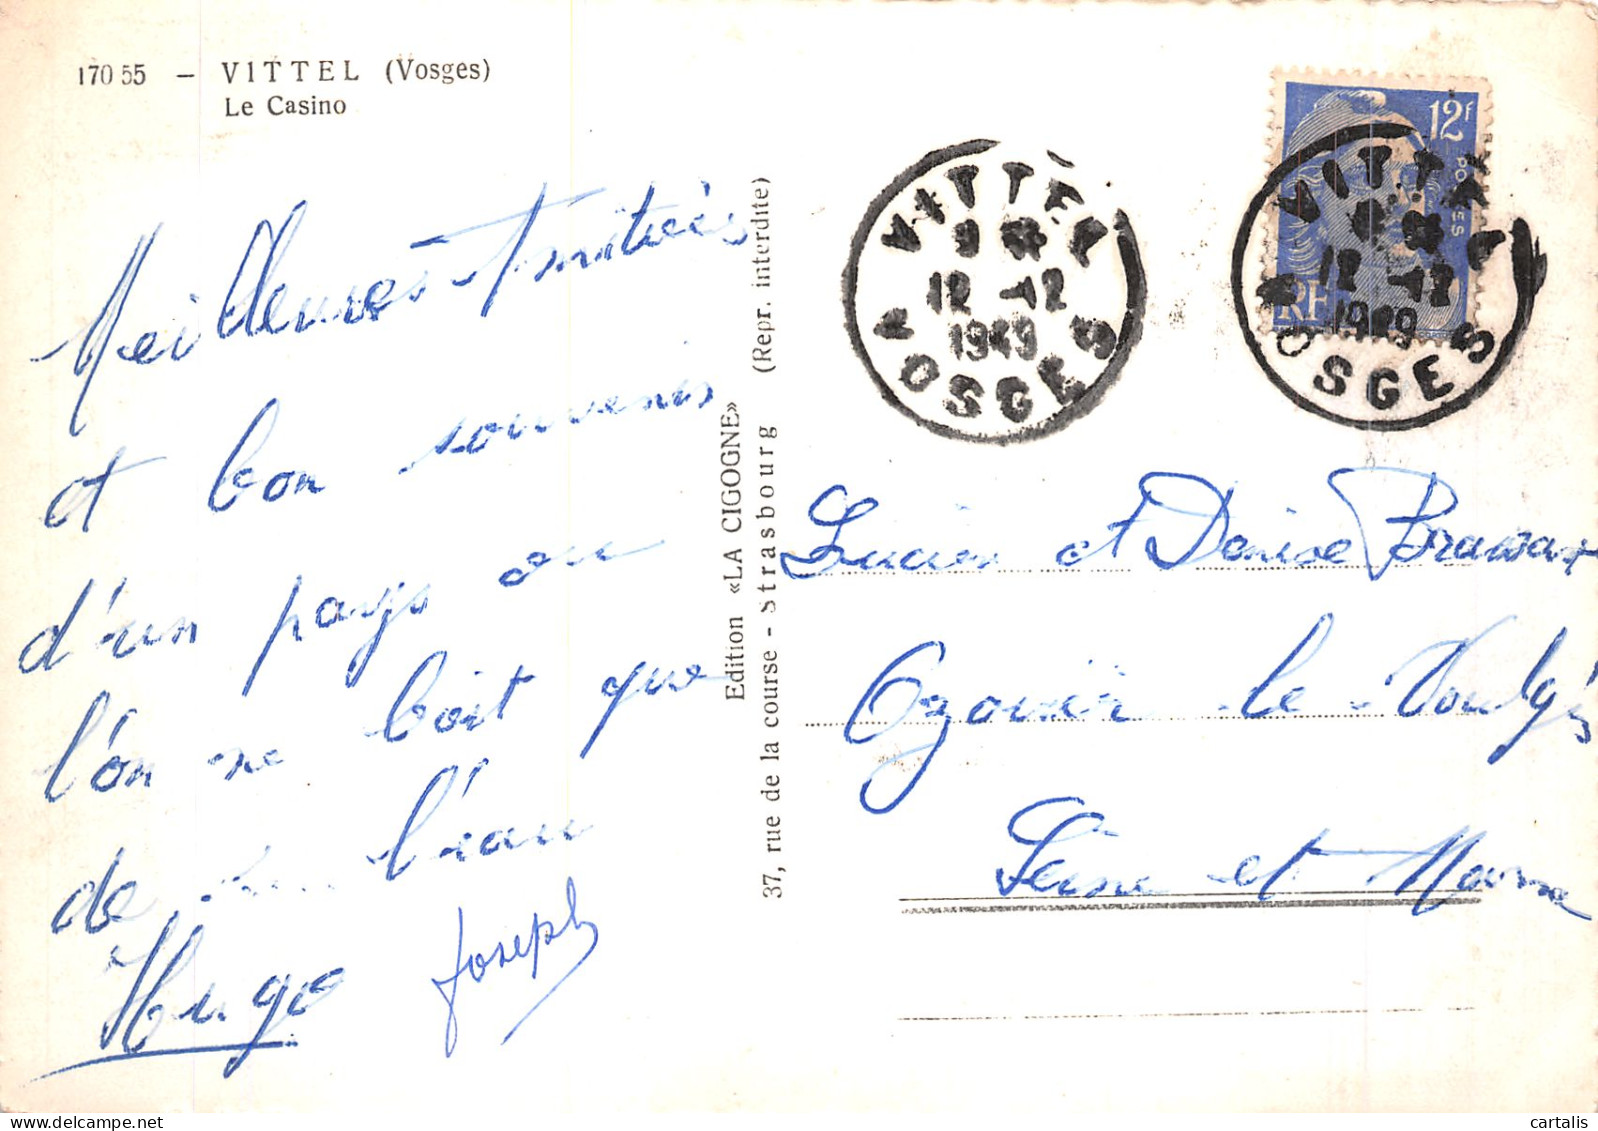 170 55 — VITTEL (Vosges)
Le Casino
Meilleures Amitiés
et bon souvenirs
d'un pays ou
l'on ne boit que
de l'eau
Hugo Joseph
Edition «LA CIGOGNE»
37, rue de la course - Strasbourg (Repr. interdite)
VITTEL
12 -12
1949
VOSGES
12f
POSTES
RF
VITTEL
12 -12
1949
VOSGES
Lucien et Denise
Ozouër le Voulgis
Seine et Marne
cartalis